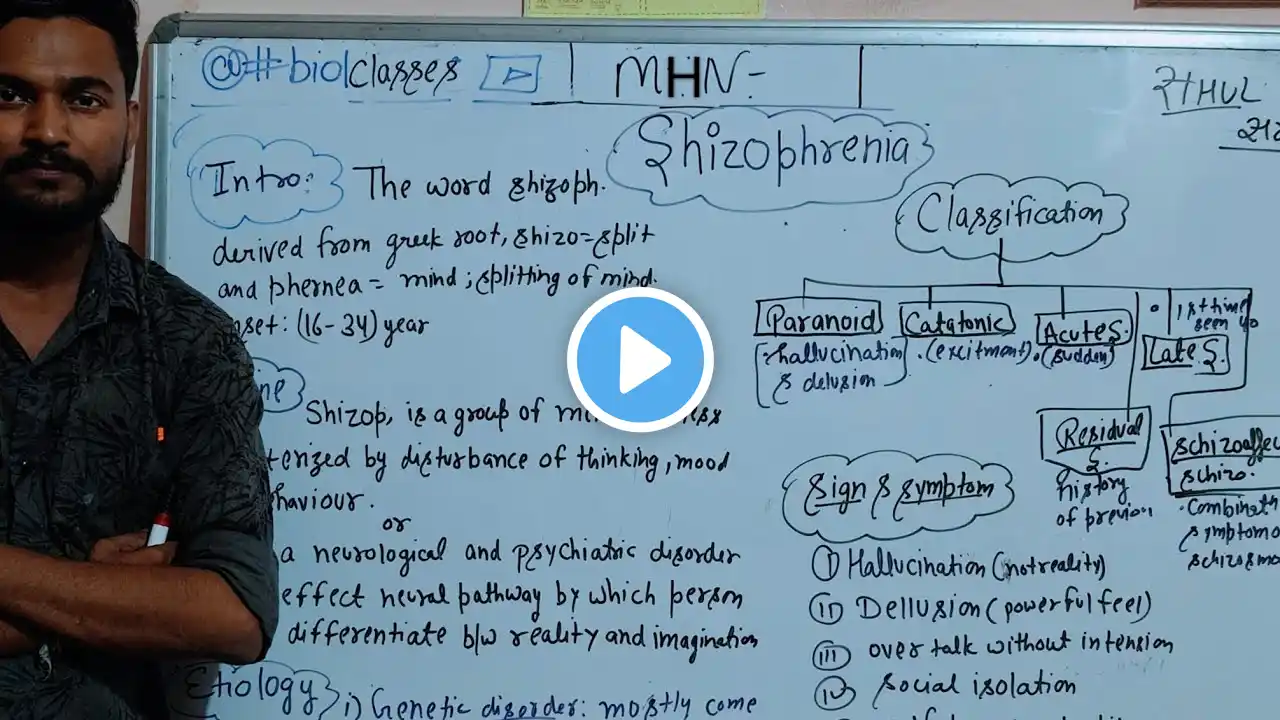 @#biolclasses
MHN-
Shizophrenia
Intro:
The word shizoph.
derived from greek root, shizo=split
and phernea = mind ; splitting of mind.
(16-34) year
Shizop, is a group of
by disturbance of thinking, mood
or
a neurological and psychiatric disorder
effect neural pathway by which person
differentiate b/w reality and imagination
Etiology
i) Genetic disorder: mostly come
Classification
Paranoid
hallucination
& delusion
Catatonic
(excitment)
Acute S.
(sudden)
1st time
seen 40
Late S.
Residual
S.
history
of previou
schizoaffec
schizo.
Combinati
symptom o
Sign & symptom
I Hallucination (not reality)
II Dellusion (powerful feel)
III over talk without intension
IV social isolation